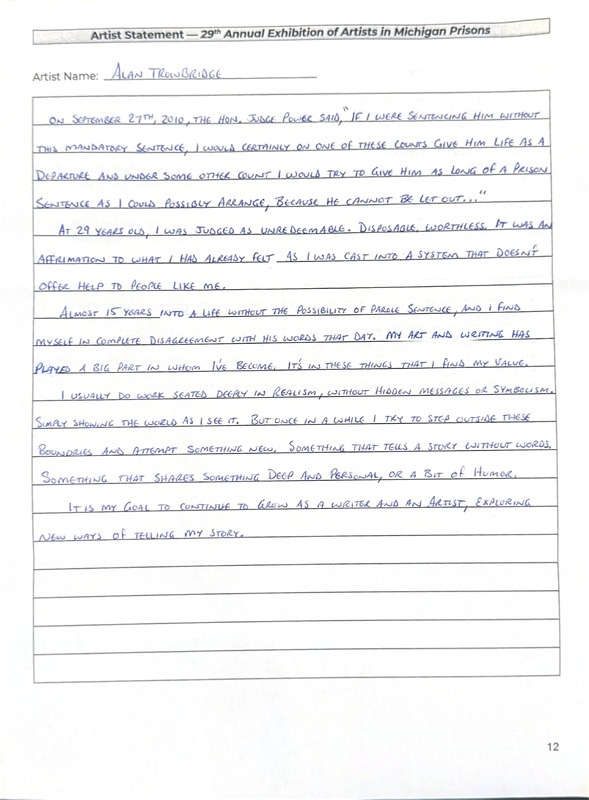 Artist Statement — 29th Annual Exhibition of Artists in Michigan Prisons
Artist Name: ALAN TROWBRIDGE
ON SEPTEMBER 27TH, 2010, THE HON. JUDGE POWER SAID, "IF I WERE SENTENCING HIM WITHOUT
THIS MANDATORY SENTENCE, I WOULD CERTAINLY ON ONE OF THESE COUNTS GIVE HIM LIFE AS A
DEPARTURE AND UNDER SOME OTHER COUNT I WOULD TRY TO GIVE HIM AS LONG OF A PRISON
SENTENCE AS I COULD POSSIBLY ARRANGE, BECAUSE HE CANNOT BE LET OUT..."
AT 29 YEARS OLD, I WAS JUDGED AS UNREDEEMABLE. DISPOSABLE. WORTHLESS. IT WAS AN
AFFRIMATION TO WHAT I HAD ALREADY FELT AS I WAS CAST INTO A SYSTEM THAT DOESN'T
OFFER HELP TO PEOPLE LIKE ME.
ALMOST 15 YEARS INTO A LIFE WITHOUT THE POSSIBILITY OF PAROLE SENTENCE, AND I FIND
MYSELF IN COMPLETE DISAGREEMENT WITH HIS WORDS THAT DAY. MY ART AND WRITING HAS
PLAYED A BIG PART IN WHOM I'VE BECOME. IT'S IN THESE THINGS THAT I FIND MY VALUE.
I USUALLY DO WORK SEATED DEEPLY IN REALISM, WITHOUT HIDDEN MESSAGES OR SYMBOLISM.
SIMPLY SHOWING THE WORLD AS I SEE IT. BUT ONCE IN A WHILE I TRY TO STEP OUTSIDE THESE
BOUNDRIES AND ATTEMPT SOMETHING NEW. SOMETHING THAT TELLS A STORY WITHOUT WORDS.
SOMETHING THAT SHARES SOMETHING DEEP AND PERSONAL, OR A BIT OF HUMOR.
IT IS MY GOAL TO CONTINUE TO GROW AS A WRITER AND AN ARTIST, EXPLORING
NEW WAYS OF TELLING MY STORY.
12